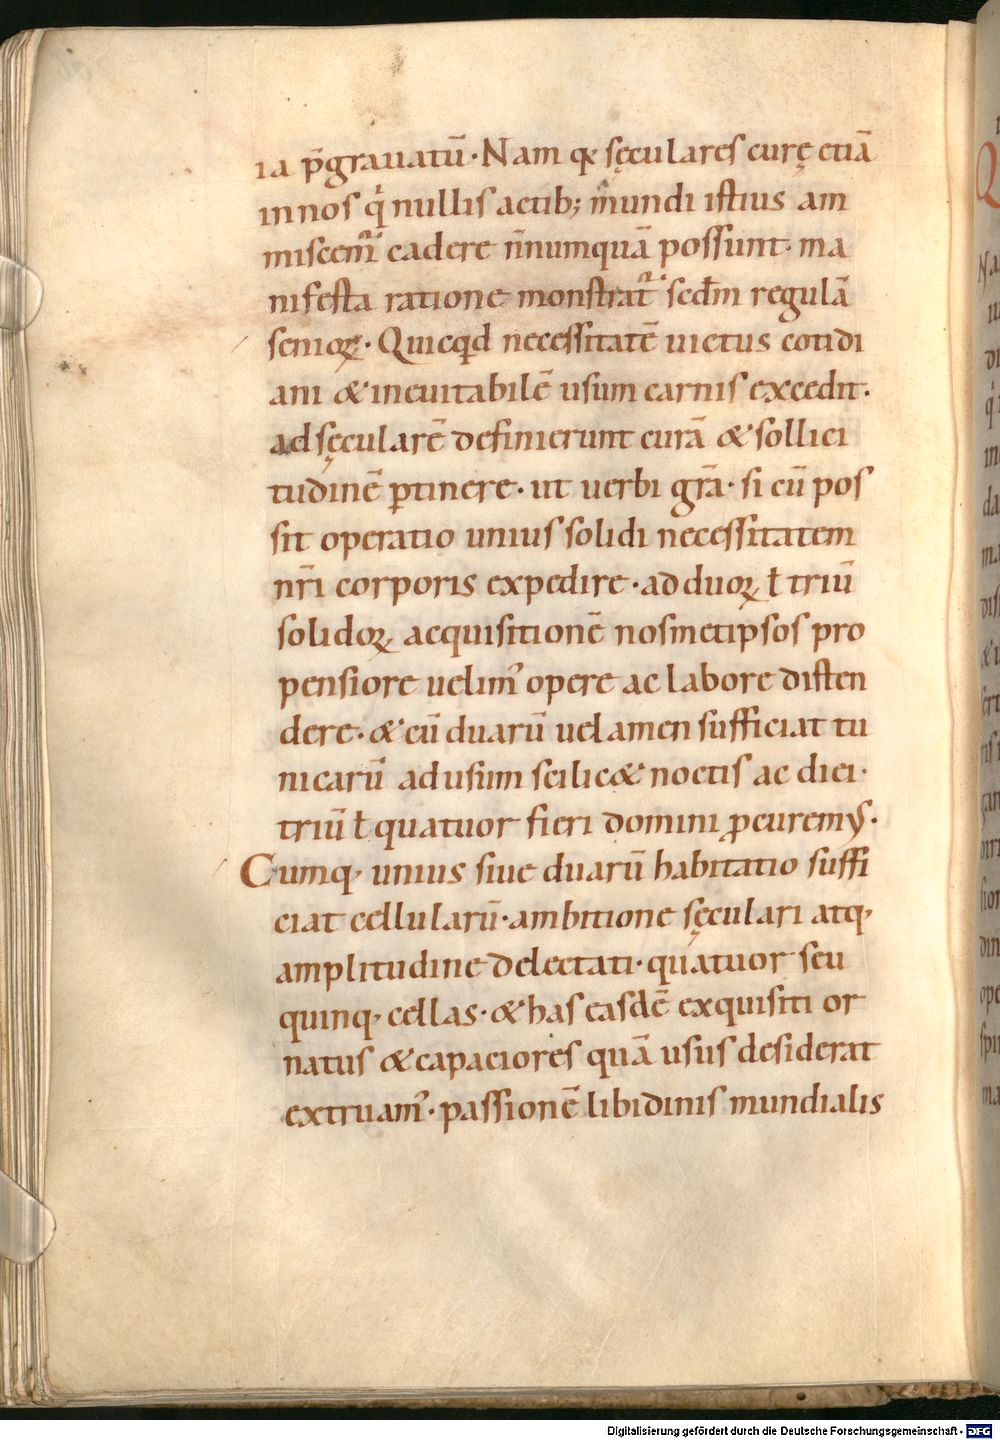 ia p̄grauatū · Nam qđ sęculares curę etiā
in nos qͥ nullis actib; mundi istius am
miscemᷣ cadere ñnumquā possunt · ma
nifesta ratione monstratᷣ scđm regulā
senioꝝ · Quicqd necessitatē uictus cotidi
ani & ineuitabilē usum carnis excedit ·
ad sęcularē definierunt curā & sollici
tudinē ꝑtinere · ut uerbi gr̄a · si cū pos
sit operatio unius solidi necessitatem
nr̄i corporis expedire · ad duoꝝ ł triū
solidoꝝ acquisitionē nosmetipsos pro
pensiore uelimꝰ opere ac labore disten
dere · & cū duarū uelamen sufficiat tu
nicarū ad usum scilic& noctis ac diei ·
triū ł quatuor fieri domini ꝓcuremꝰ ·
Cumq, unius siue duarū habitatio suffi
ciat cellularū · ambitione sęculari atq,
amplitudine delectati · quatuor seu
quinq, cellas · & has easdē exquisiti or
natus & capaciores quā usus desiderat
extruamꝰ · passionē libidinis mundialis
Digitalisierung gefördert durch die Deutsche Forschungsgemeinschaft - DFG